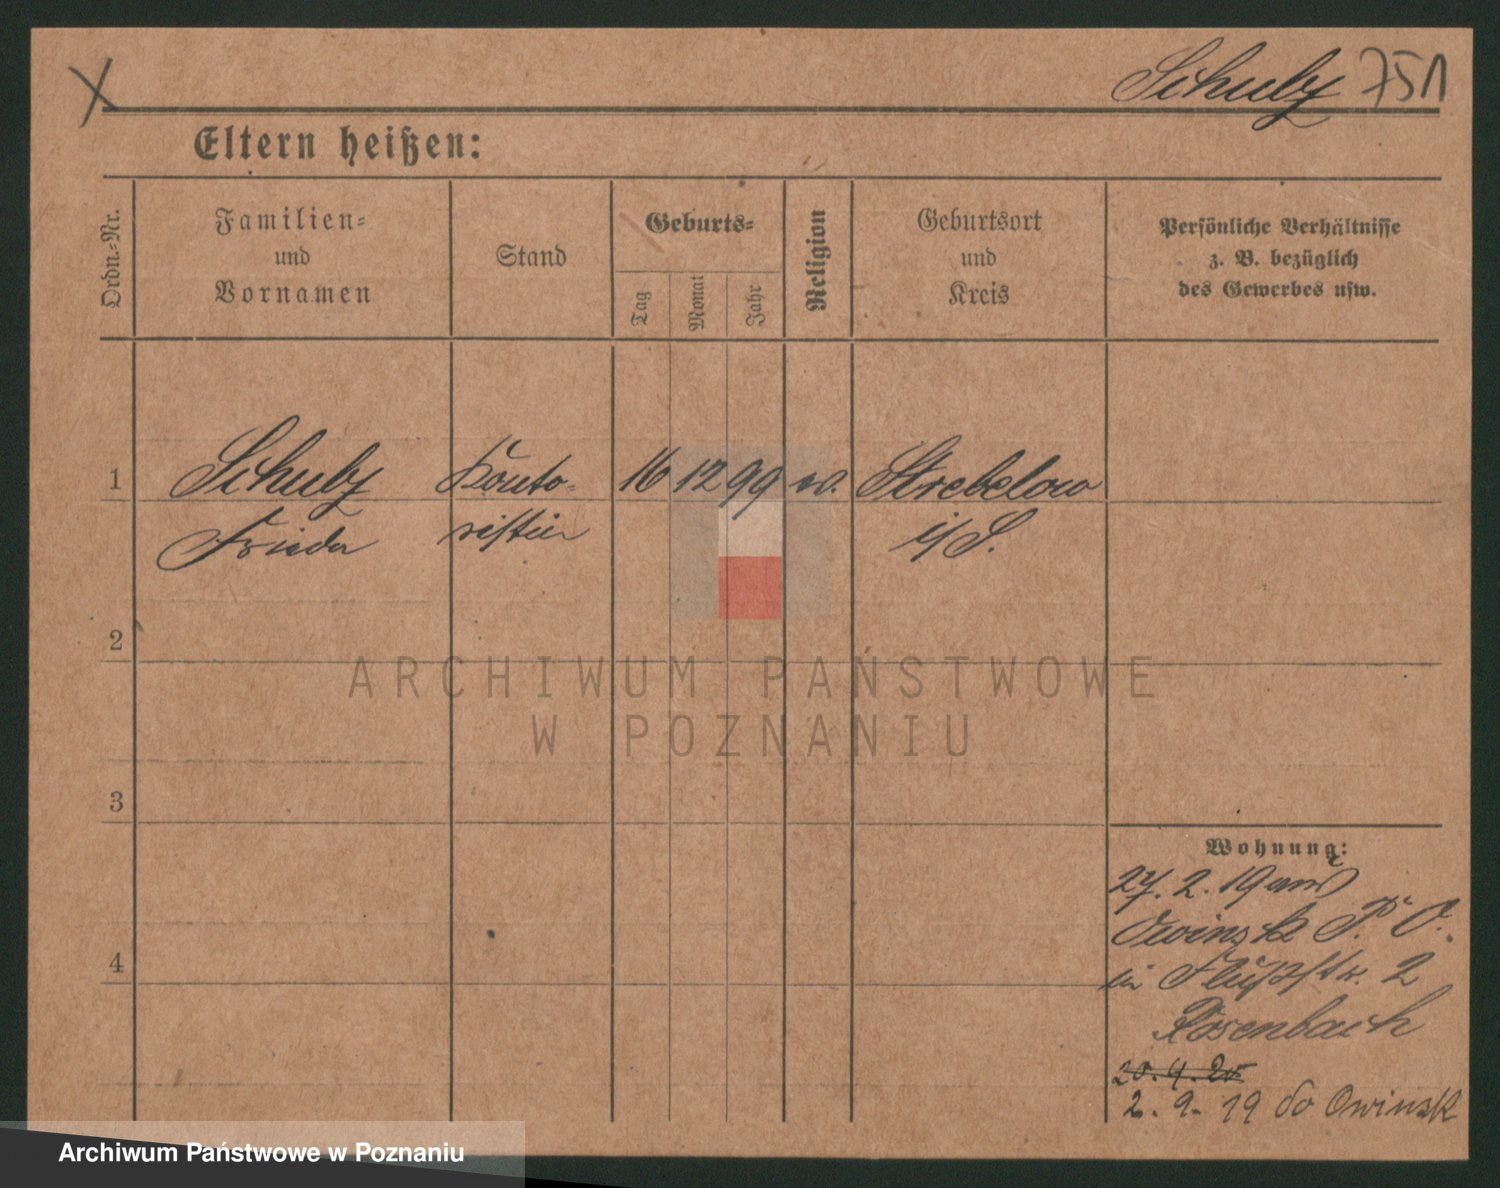 X
Schulz 751
Eltern heißen:
Ordn.-Nr.
Familien-
und
Vornamen
Stand
Geburts-
Tag
Monat
Jahr
Religion
Geburtsort
und
Kreis
Persönliche Verhältnisse
z. B. bezüglich
des Gewerbes usw.
1
Schulz
Frieda
Konto-
ristin
16 12 99
Strebelow
i/S.
2
3
4
Wohnung:
27. 2. 19 aus
Owinsk P. O.
in Flußstr. 2
Rosenbach
20. 4. 20
2. 9. 19 do Owinsk
ARCHIWUM PAŃSTWOWE
W POZNANIU
Archiwum Państwowe w Poznaniu